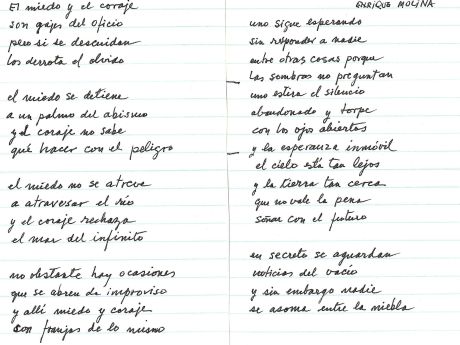 El miedo y el coraje
son gajes del oficio
pero si se descuidan
los derrota el olvido
el miedo se detiene
a un palmo del abismo
y el coraje no sabe
qué hacer con el peligro
el miedo no se atreve
a atravesar el río
y el coraje rechaza
el mar del infinito
no obstante hay ocasiones
que se abren de improviso
y allí miedo y coraje
son franjas de lo mismo
ENRIQUE MOLINA
uno sigue esperando
sin responder a nadie
entre otras cosas porque
las sombras no preguntan
uno estira el silencio
abandonado y torpe
con los ojos abiertos
y la esperanza inmóvil
el cielo está tan lejos
y la tierra tan cerca
que no vale la pena
soñar con el futuro
en secreto se aguardan
noticias del vacío
y sin embargo nadie
se asoma entre la niebla